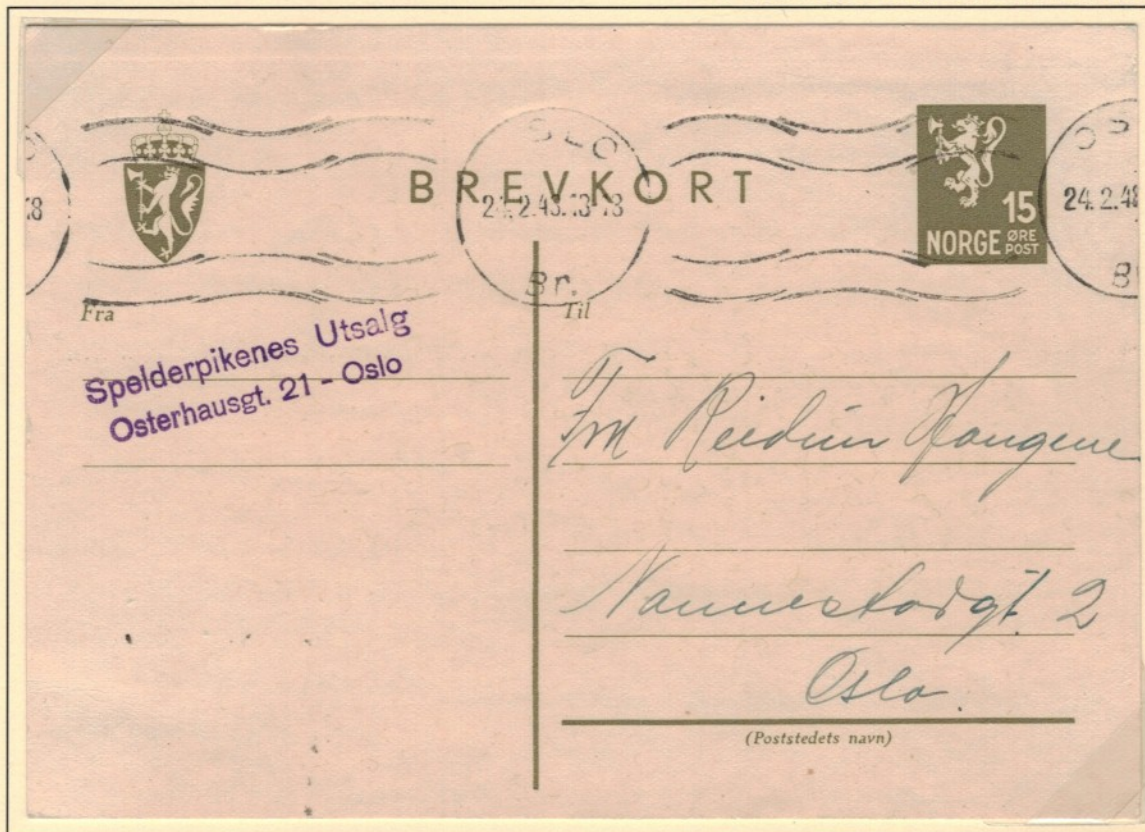 BREVKORT
SLO
24.2.48.13-13
Br.
15
NORGE ØRE POST
OS
24.2.48
B
18
Fra
Spelderpikenes Utsalg
Osterhausgt. 21 - Oslo
Til
Reidun Haugene
Nannestadgt. 2
Oslo.
(Poststedets navn)